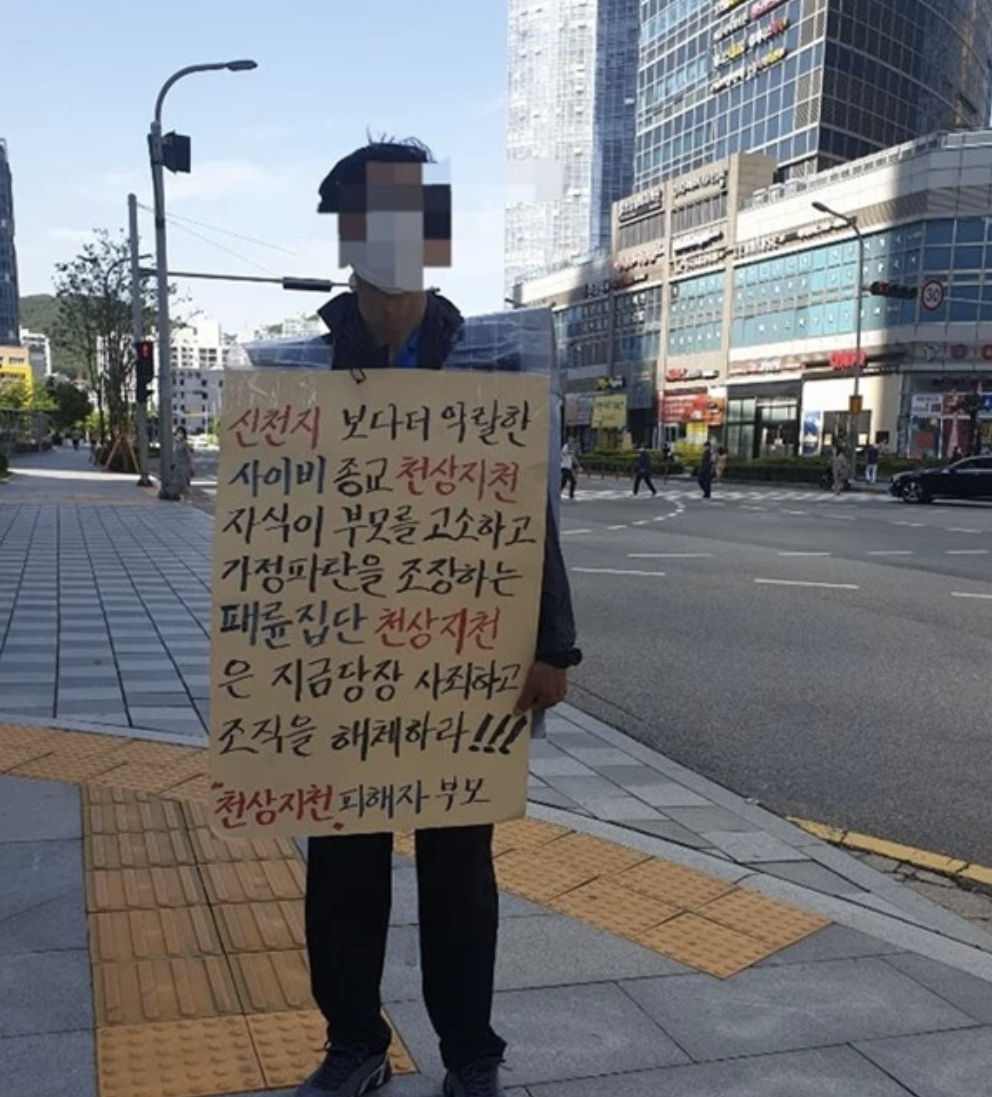 신천지 보다더 악랄한
사이비 종교 천상지천
자식이 부모를 고소하고
가정파탄을 조장하는
패륜집단 천상지천
은 지금당장 사죄하고
조직을 해체하라!!!
"천상지천" 피해자 부모
30